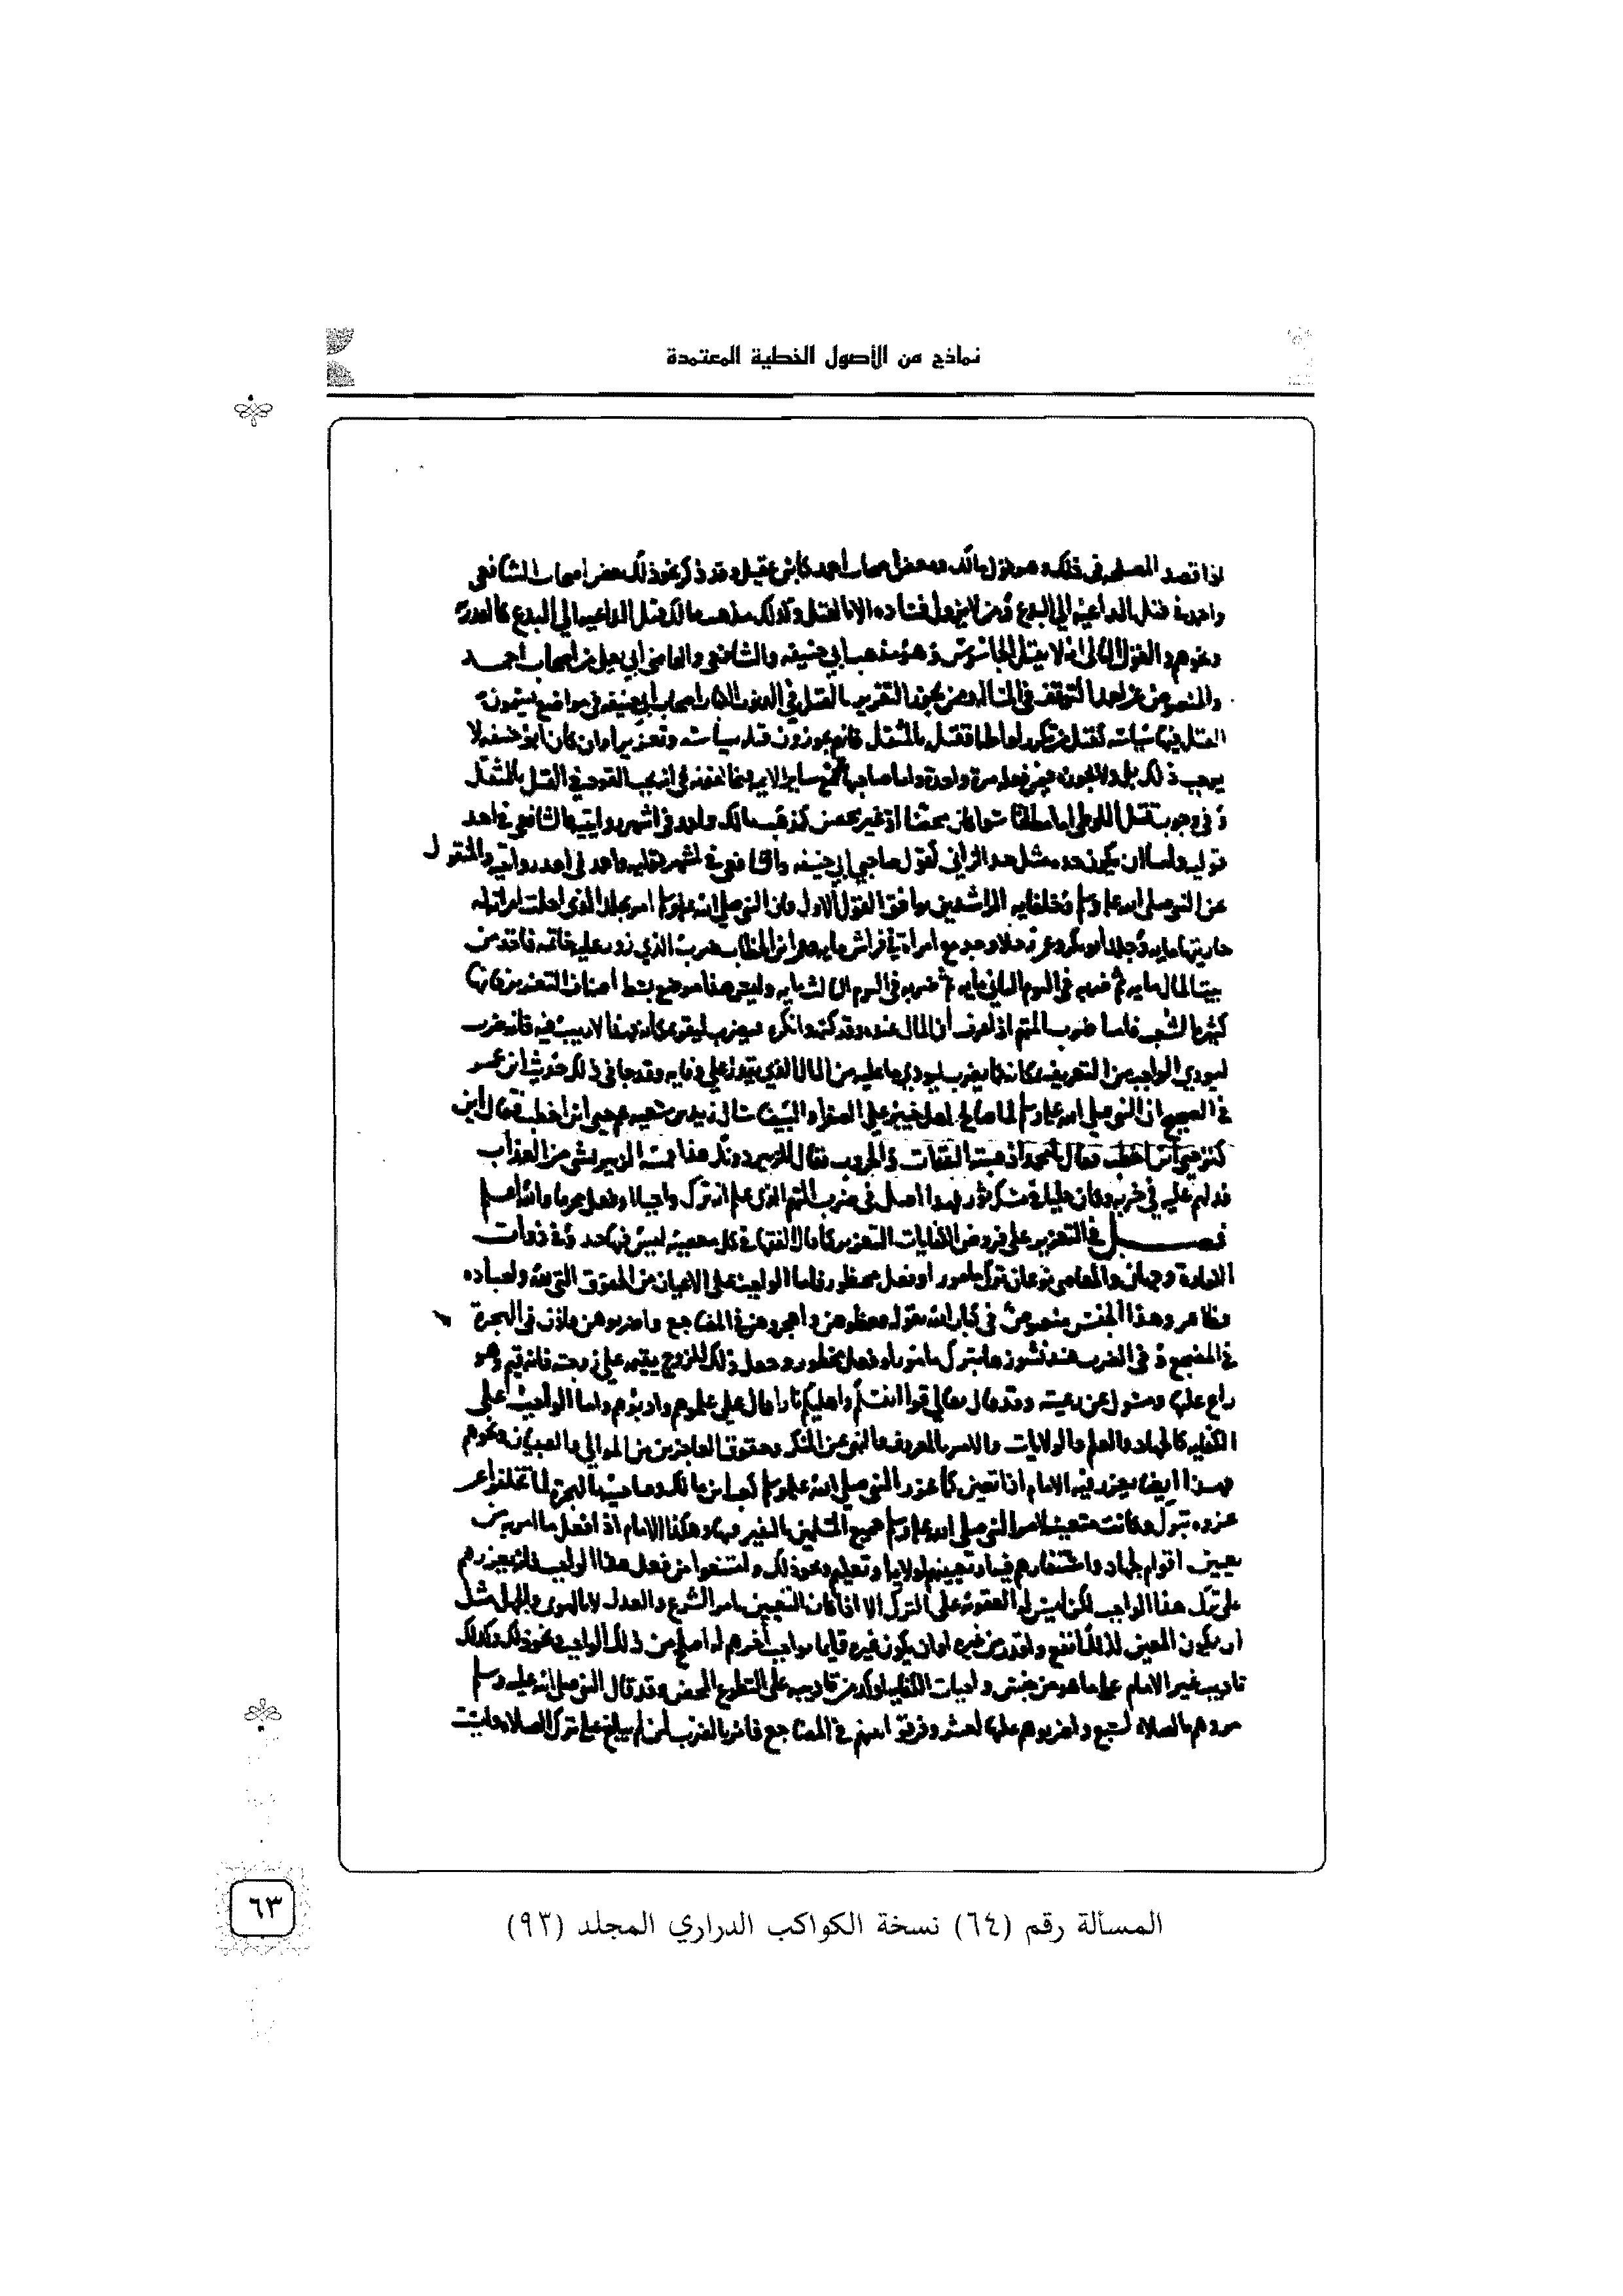 نماذج من الأصول الخطية المعتمدة
اذا قصد المصلحه في ذلك وهو قول مالك وبعض اصحاب احمد كابن عقيل وقد ذكر نحو ذلك بعض اصحاب الشافعي
واحمد في قتل الداعيه الي البدع ومن لا يزول فساده الا بالقتل وكذلك مذهب مالك قتل الداعيه الي البدع كالقدريه
ونحوهم والقول الثاني انه لا يقتل الجاسوس وهو مذهب ابي حنيفه والشافعي والقاضي ابي يعلى من اصحاب احمد
والمنصوص عن احمد التوقف في المساله وممن يجوز التعزير بالقتل في الذنوب الكبار اصحاب ابي حنيفه في مواضع يسمون
القتل فيها سياسه كقتل من تكرر لواطه او قتله بالمثقل فانهم يجوزون قتله سياسه وتعزيرا وان كان ابو حنيفه لا
يوجب ذلك بل ولا يجوزه فيمن فعله مرة واحدة واما صاحباه مع ساير الايمه فيخالفونه في انه يجب القود في القتل بالمثقل
وفي وجوب قتل اللوطي اما مطلقا سوا كان محصنا او غير محصن كمذهب مالك واحمد في اشهر روايتيه والشافعي في احد
قوليه واما ان يكون حده مثل حد الزاني كقول صاحبي ابي حنيفه والشافعي في اشهر قوليه واحمد في احد روايتيه والمنقول
عن النبي صلى الله عليه وسلم وخلفايه الراشدين يوافق القول الاول فان النبي صلى الله عليه وسلم امر بجلد الذي احلت امراته له
جاريتها مايه وجلد ابو بكر وعمر رجلا وجد مع امراة في فراش مايه وعمر ابن الخطاب ضرب الذي زور عليه خاتمه فاخذ من
بيت المال مايه ثم ضربه في اليوم الثاني مايه ثم ضربه في اليوم الثالث مايه وليس هذا موضع بسط اصناف التعزير فانها
كثيرة الشعب فاما ضرب المتهم اذا عرف أن المال عنده وقد كتمه وانكره فيضرب ليقر بمكانه فهذا لا ريب فيه فانه ضرب
ليودي الواجب من التعريف بمكانه كما يضرب ليودي ما عليه من المال الذي يقدر على وفايه وقد جا في ذلك حديث ابن عمر
في الصحيح ان النبي صلى الله عليه وسلم لما صالح اهل خيبر علي الصفرا والبيضا سال زيد بن سعيه عم حيي ابن اخطب فقال اين
كنز حيي ابن اخطب فقال يا محمد اذهبته النفقات والحروب فقال للزبير دونك هذا فمسه الزبير بشي من العذاب
فدلهم عليه في خربه وكان حليا في مسك ثور فهذا اصل في ضرب المتهم الذي علم انه ترك واجبا او فعل محرما والله اعلم
فصل في التعزير على فروض الكفايات التعزير كما قال الفقها في كل معصيه ليس فيها حد وفي ذوات
الكفارة وجهان والمعاصي نوعان ترك مامور او فعل محظور فاما الواجب على الاعيان من الحقوق التي لله ولعباده
فظاهر وهذا الجنس منصوص في كتاب الله بقوله فعظوهن واهجروهن في المضاجع واضربوهن فاذن في الهجرة
في المضجع وفي الضرب عند نشوزها بترك مامور او فعل محظور وجعل ذلك للزوج يقيمه على زوجته فانه قيم وهو
راع عليها ومسئول عن رعيته وقد قال تعالى قوا انفسكم واهليكم نارا قال علي علموهم وادبوهم واما الواجب على
الكفايه كالجهاد والعلم والولايات والامر بالمعروف والنهي عن المنكر وحقوق العاجزين من الموالي والصبيان ونحوهم
فهذا ايضا يعزر فيه الامام اذا تعين كما عزر النبي صلى الله عليه وسلم كعب ابن مالك وصاحبيه بالهجرة لما تخلفوا عن
غزوه تبوك وكانت متعينه لامر النبي صلى الله عليه وسلم جميع المسلمين بالنفير فيها وهكذا الامام اذا فعل ما امر به من
تعيين اقوام لجهاد واستنفارهم فيه او تعيينهم لولايه او تعليم ونحو ذلك وامتنعوا من فعل هذا الواجب فانه يعزرهم
على ترك هذا الواجب لكن ليس له العقوبه على الترك الا اذا كان التعيين بامر الشرع والعدل لا بالهوى والجهل مثل
ان يكون المعين لذلك انفع واقدر من غيره او ان يكون غيره قايما بواجب اخر هم له اصلح من ذلك الواجب ونحو ذلك وكذلك
تاديب غير الامام على ما هو من جنس واجبات الكفايه اوكد من تاديبه على التطوع المحض وقد قال النبي صلى الله عليه وسلم
مروهم بالصلاة لسبع واضربوهم عليها لعشر وفرقوا بينهم في المضاجع فامر بالضرب لمن لم يبلغ على ترك الصلاة
٦٣
المسألة رقم (٦٤) نسخة الكواكب الدراري المجلد (٩٣)